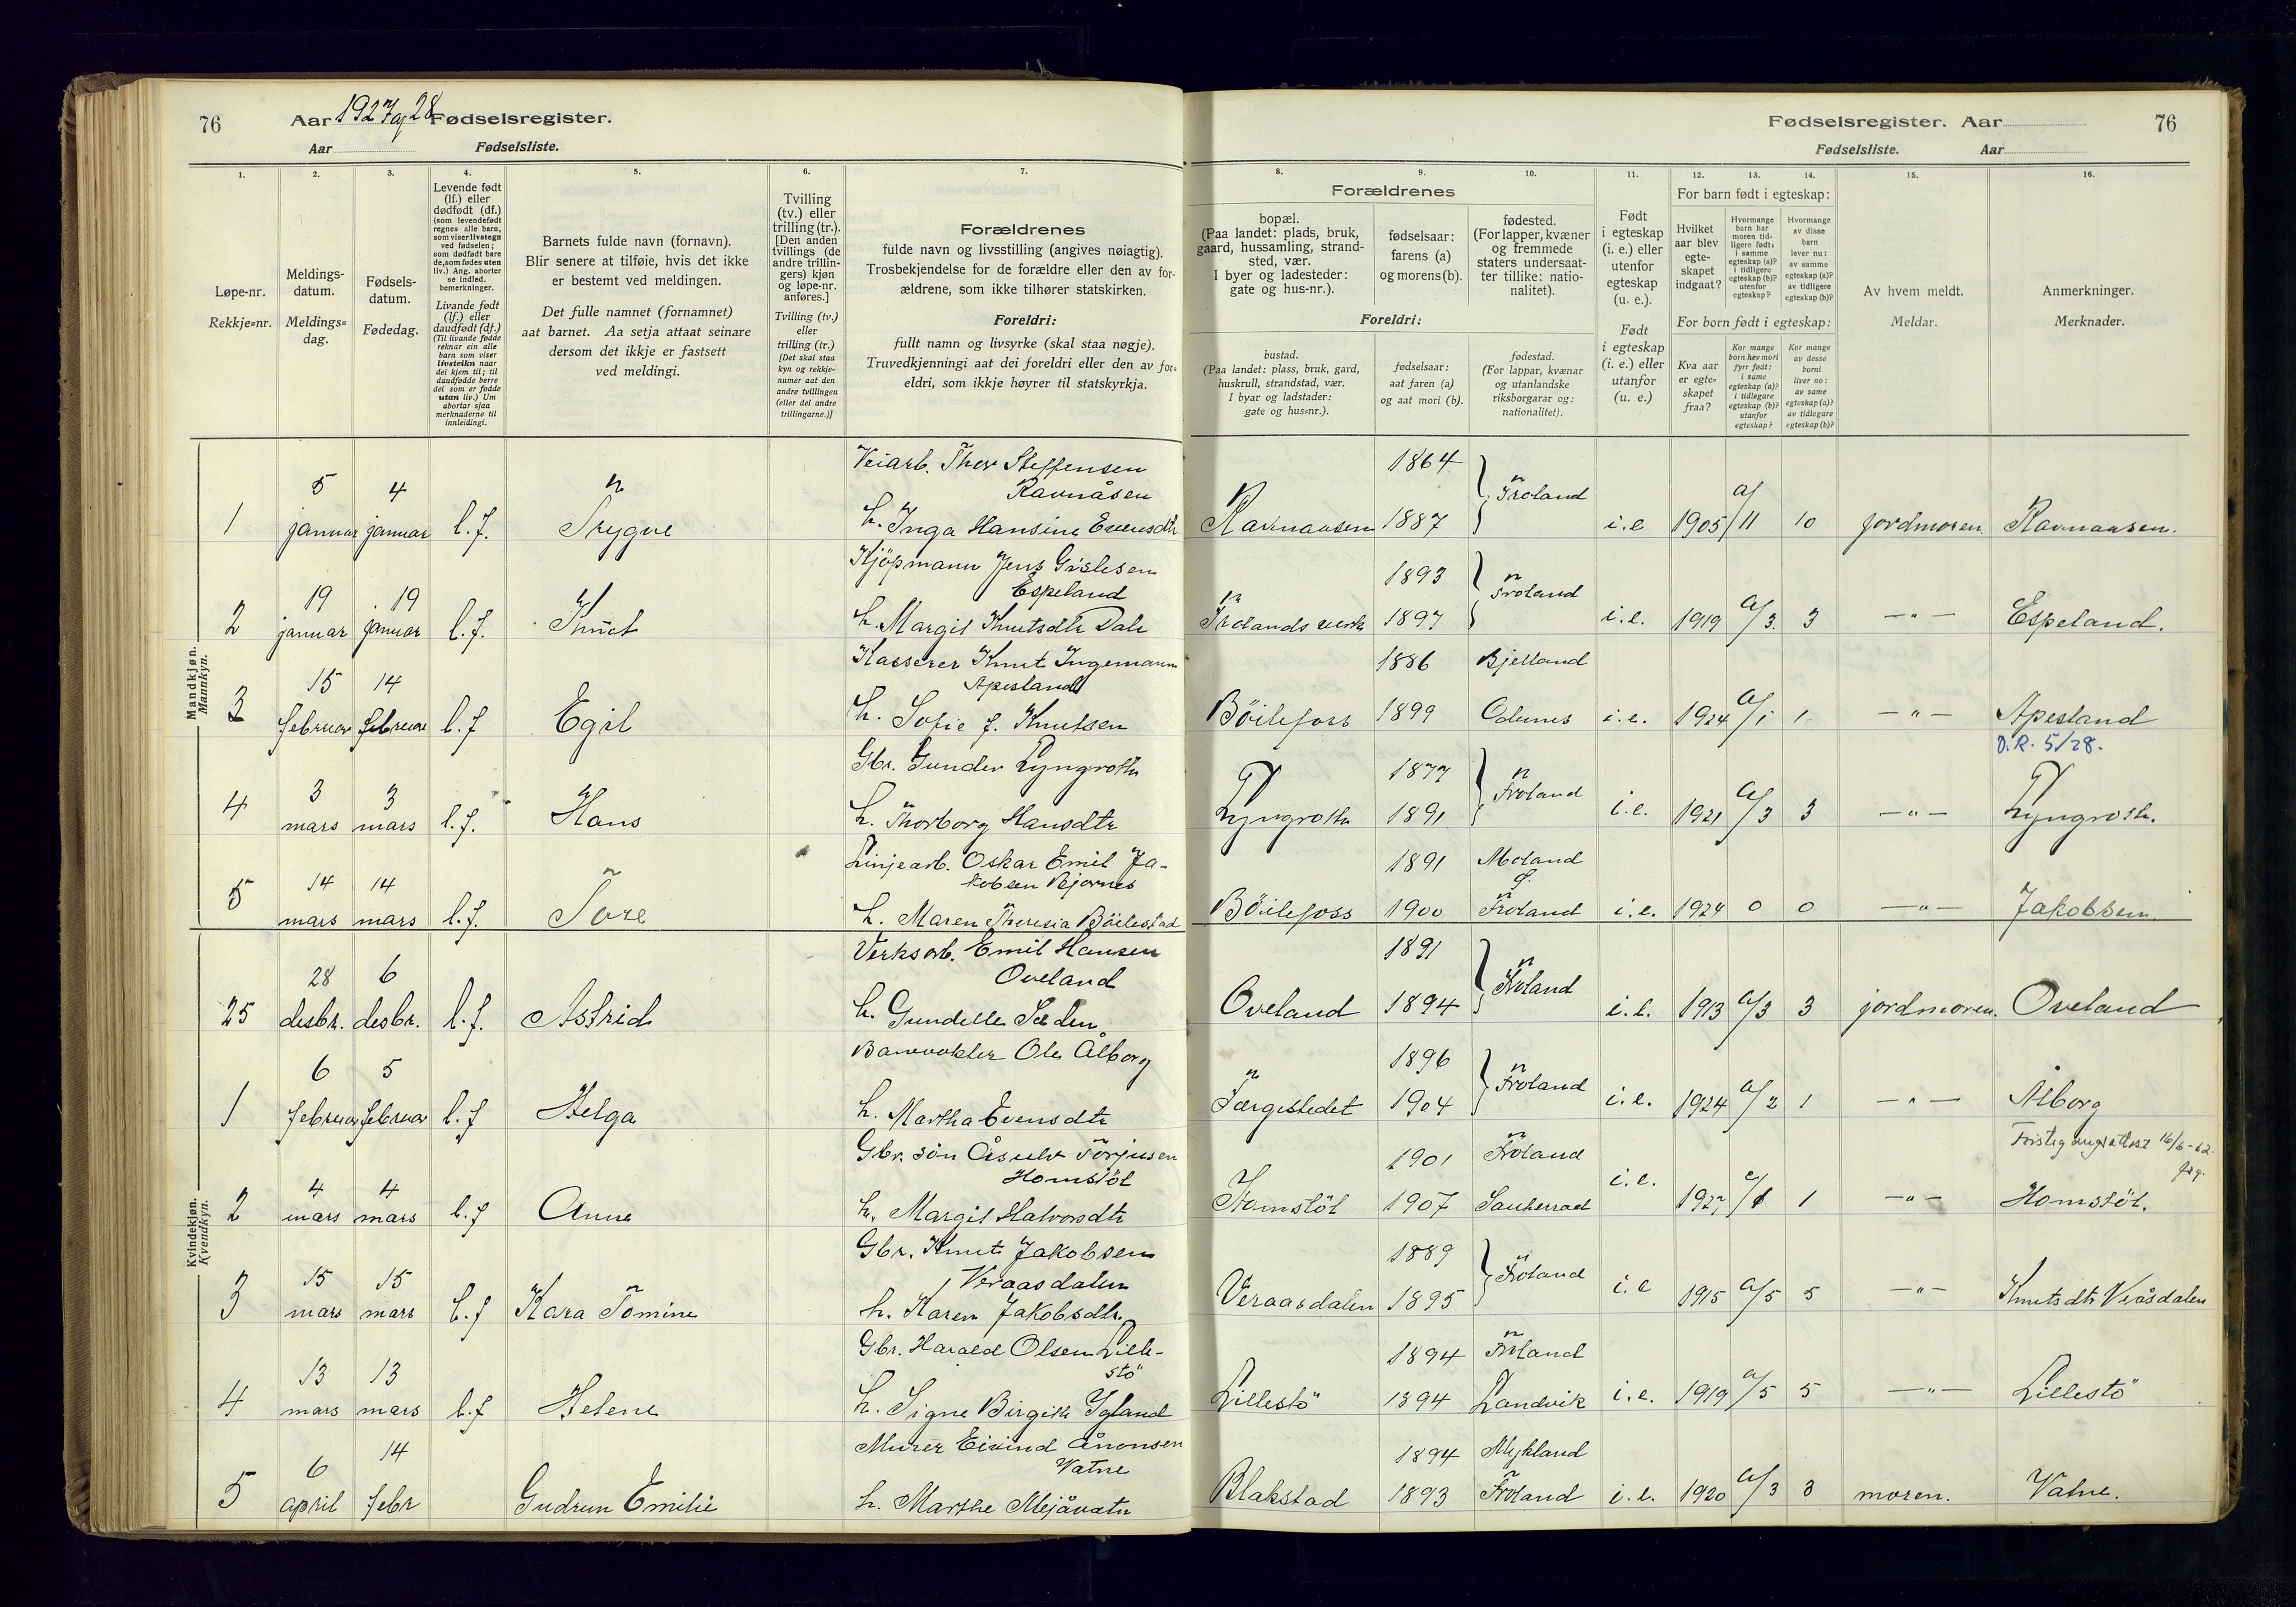 76
Aar 1927 og 28 Fødselsregister.
Aar Fødselsliste.
Fødselsregister. Aar
76
Fødselsliste. Aar
1.
Løpe-nr.
Rekkje-nr.
2.
Meldings-
datum.
Meldings-
dag.
3.
Fødsels-
datum.
Fødedag.
4.
Levende født
(lf.) eller
dødfødt (df.)
(som levendefødt
regnes alle barn,
som viser livstegn
ved fødselen;
som dødfødt bare
de, som fødes uten
liv.) Ang. aborter
se indled.
bemerkninger.
Livande født
(lf.) eller
daudfødt (df.)
(Til livande fødde
reknar ein alle
barn som viser
livsteikn naar
dei kjem til; til
daudfødde berre
dei som er fødde
utan liv.) Um
abortar sjaa
merknaderne til
innleidingi.
5.
Barnets fulde navn (fornavn).
Blir senere at tilføie, hvis det ikke
er bestemt ved meldingen.
Det fulle namnet (fornamnet)
aat barnet. Aa setja attaat seinare
dersom det ikkje er fastsett
ved meldingi.
6.
Tvilling
(tv.) eller
trilling (tr.).
[Den anden
tvillings (de
andre trillin-
gers) kjøn
og løpe-nr.
anføres.]
Tvilling (tv.)
eller
trilling (tr.)
[Det skal staa
kyn og rekkje-
numer aat den
andre tvillingen
(eller dei andre
trillingarne.)]
7.
Forældrenes
fulde navn og livsstilling (angives nøiagtig).
Trosbekjendelse for de forældre eller den av for-
ældrene, som ikke tilhører statskirken.
Foreldri:
fullt namn og livsyrke (skal staa nøgje).
Truvedkjenningi aat dei foreldri eller den av for-
eldri, som ikkje høyrer til statskyrkja.
Forældrenes
8.
bopæl.
(Paa landet: plads, bruk,
gaard, hussamling, strand-
sted, vær.
I byer og ladesteder:
gate og hus-nr.).
9.
fødselsaar:
farens (a)
og morens (b).
10.
fødested.
(For lapper, kvæner
og fremmede
staters undersaat-
ter tillike: natio-
nalitet).
Foreldri:
bustad.
(Paa landet: plass, bruk, gard,
huskrull, strandstad, vær.
I byar og ladstader:
gate og hus-nr.).
fødselsaar:
aat faren (a)
og aat mori (b).
fødestad.
(For lappar, kvænar
og utanlandske
riksborgarar og:
nationalitet).
11.
Født
i egteskap
(i. e.) eller
utenfor
egteskap
(u. e.).
Født
i egteskap
(i. e.) eller
utanfor
(u. e.)
For barn født i egteskap:
12.
Hvilket
aar blev
egte-
skapet
indgaat?
13.
Hvormange
barn har
moren tid-
ligere født:
i samme
egteskap (a)?
i tidligere
egteskap (b)?
utenfor
egteskap?
14.
Hvormange
av disse
barn
lever nu:
av samme
egteskap (a)?
av tidligere
egteskap (b)?
For born født i egteskap:
Kva aar
er egte-
skapet
fraa?
Kor mange
born hev mori
fyrr født:
i same
egteskap (a)?
i tidlegare
egteskap (b)?
utanfor
egteskap?
Kor mange
av desse
borni
liver no:
av same
egteskap (a)?
av tidlegare
egteskap (b)?
15.
Av hvem meldt.
Meldar.
16.
Anmerkninger.
Merknader.
Mandkjøn.
Mannkyn.
1
5 januar
4 januar
l. f.
Trygve
Veiarb. Thor Steffensen
Ravnåsen
h. Inga Hansine Evensdtr.
Ravnaasen
1864
1887
Froland
i.e
1905
a/11
10
jordmoren.
Ravnaasen.
2
19 januar
19 januar
l. f.
Knut
Kjöpmann Jens Gislesen
Espeland
h. Margit Knutsdtr Dale
Frolands verk
1893
1897
Froland
i.e.
1919
a/3.
3
— " —
Espeland.
3
15 februar
14 februar
l. f
Egil
Kasserer Knut Ingemann
Apesland
h. Sofie f. Knutsen
Böilefoss
1886
1899
Bjelland
i.e.
1924
a/1
1
— " —
Apesland
D.R. 5/28.
4
3 mars
3 mars
l. f.
Hans
Gbr. Gunder Lyngroth
h. Thorborg Hansdtr
Lyngroth
1877
1891
Froland
i.e.
1921
a/3
3
— " —
Lyngroth.
5
14 mars
14 mars
l. f.
Tore
Linjearb. Oskar Emil Ja-
kobsen Bjornes
h. Maren Theresia Böilestad
Böilefoss
1891
1900
Moland
Froland
i.e.
1924
0
0
— " —
Jakobsen
Kvindekjøn.
Kvendkyn.
25
28 desbr.
6 desbr.
l. f.
Astrid
Verksarb. Emil Hansen
Oveland
h. Gundelle
Oveland
1891
1894
Froland
i.e.
1913
a/3
3
jordmoren.
Oveland
1
6 februar
5 februar
l. f
Helga
Banevokter Ole Ålborg
h. Martha Evensdtr
Færgestedet
1896
1904
Froland
i.e.
1924
a/2
1
— " —
Ålborg
2
4 mars
4 mars
l. f
Anne
Gbr. sön Åsulv Torjusen
Homstöl
h. Margit Halvorsdtr
Homstöl
1901
1907
Froland
Sauherad
i.e.
1927
a/1
1
— " —
16/6-62
Homstöl.
3
15 mars
15 mars
l. f
Kara Tomine
Gbr. Knut Jakobsen
Veraasdalen
h. Karen Jakobsdtr.
Veraasdalen
1889
1895
Froland
i.e
1915
a/5
5
— " —
Knutsdtr Veråsdalen
4
13 mars
13 mars
l. f
Helene
Gbr. Harald Olsen Lille-
stö
h. Signe Birgith Igland
Lillestö
1894
1894
Froland
Landvik
i.e.
1919
a/5
5
— " —
Lillestö
5
6 april
14 febr
Gudrun Emilie
Murer Eivind Ånonsen
Vatne
h. Marthe Mejåvatn
Blakstad
1894
1893
Mykland
Froland
i.e.
1920
a/3
3
moren.
Vatne.